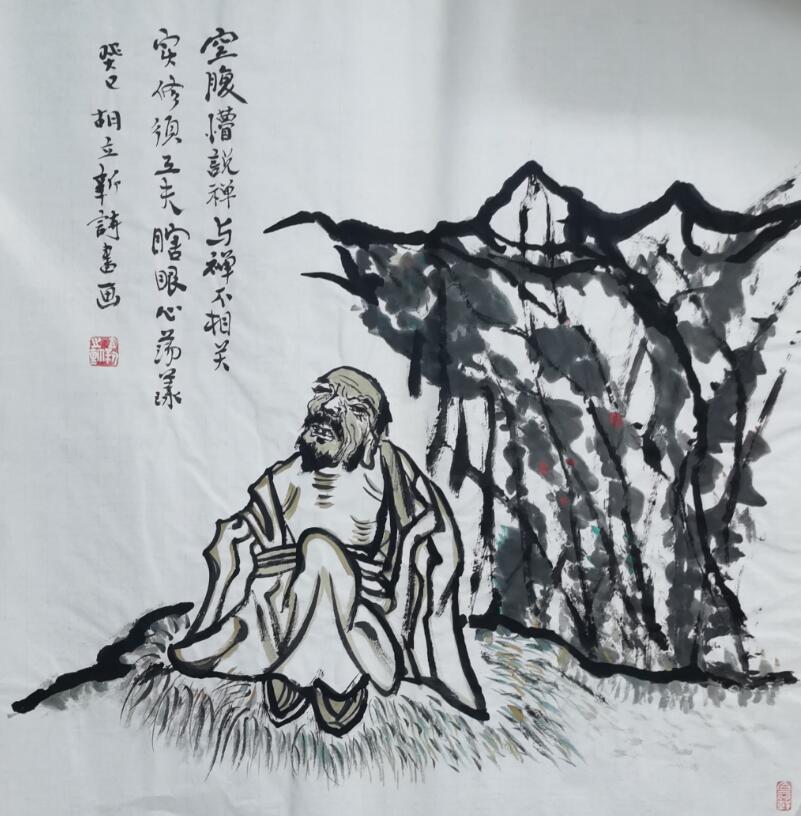 空腹懵説禅与禅不相关
实修须工夫瞎眼心荡漾
癸巳胡立新詩書画